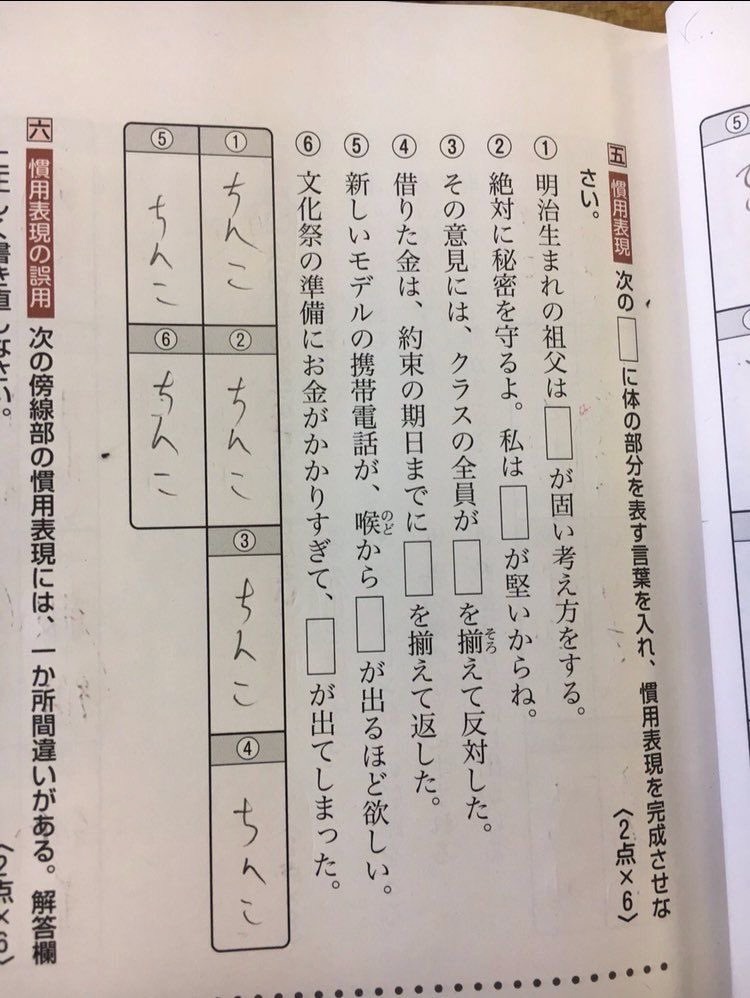 五 慣用表現 次の□に体の部分を表す言葉を入れ、慣用表現を完成させな
さい。 〈2点×6〉
① 明治生まれの祖父は□が固い考え方をする。
② 絶対に秘密を守るよ。私は□が堅いからね。
③ その意見には、クラスの全員が□を揃えて反対した。
そろ
④ 借りた金は、約束の期日までに□を揃えて返した。
⑤ 新しいモデルの携帯電話が、喉から□が出るほど欲しい。
のど
⑥ 文化祭の準備にお金がかかりすぎて、□が出てしまった。
① ちんこ
② ちんこ
③ ちんこ
④ ちんこ
⑤ ちんこ
⑥ ちんこ
六 慣用表現の誤用 次の傍線部の慣用表現には、一か所間違いがある。解答欄
に正しく書き直しなさい。 〈2点×6〉
⑤